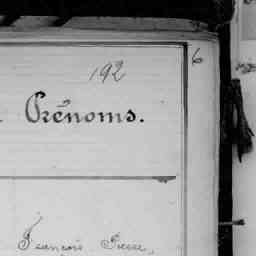 192
6
Prénoms.
François Pierre